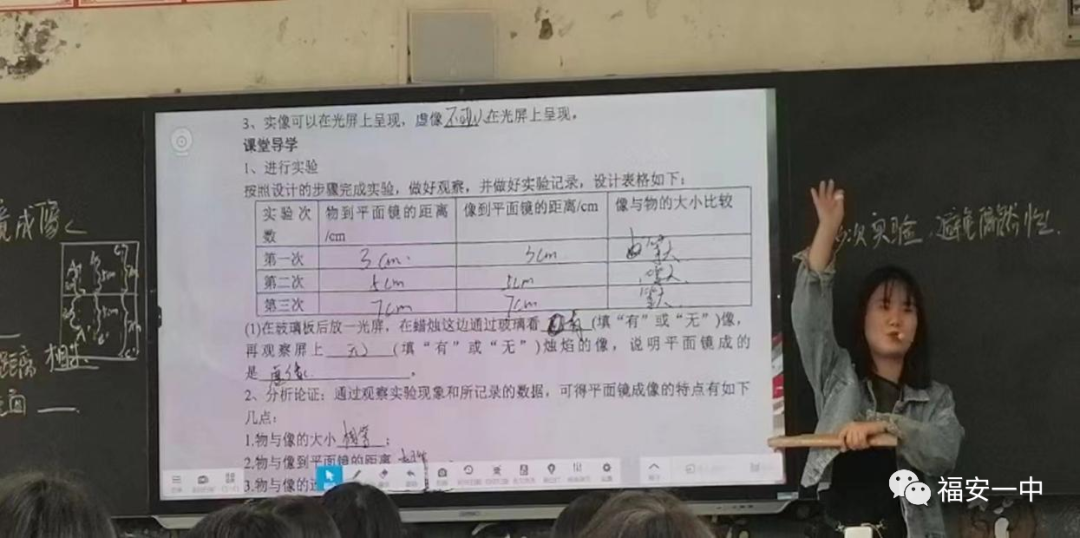 3、实像可以在光屏上呈现，虚像不可以在光屏上呈现。
课堂导学
1、进行实验
按照设计的步骤完成实验，做好观察，并做好实验记录，设计表格如下：
实验次数 物到平面镜的距离/cm 像到平面镜的距离/cm 像与物的大小比较
第一次 3cm 3cm 等大
第二次 5cm 5cm 等大
第三次 7cm 7cm 等大
(1)在玻璃板后放一光屏，在蜡烛这边通过玻璃看 有 (填“有”或“无”)像，
再观察屏上 无 (填“有”或“无”)烛焰的像，说明平面镜成的
是 虚像 。
2、分析论证：通过观察实验现象和所记录的数据，可得平面镜成像的特点有如下
几点：
1.物与像的大小 相等 ；
2.物与像到平面镜的距离 相等
3.物与像的
镜成像
距离 相等
次实验，避免偶然性.
福安一中